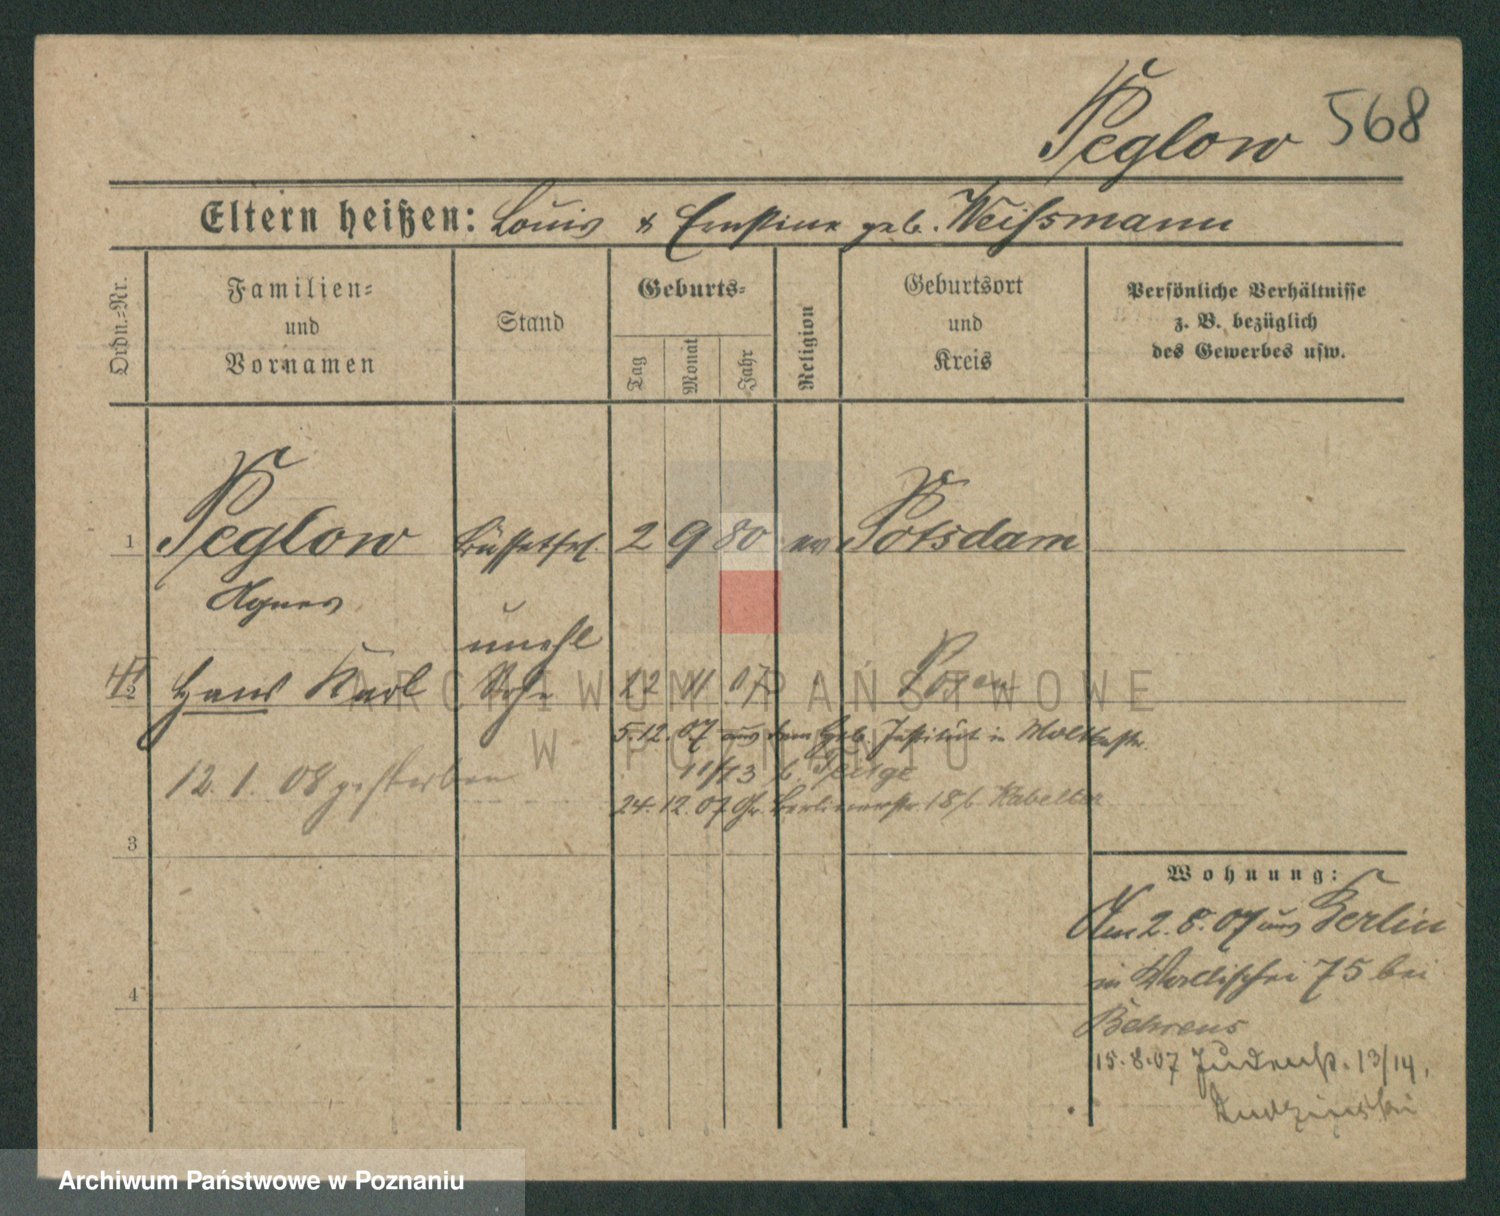 Peglow 568
Eltern heißen: Louis & Ernstine geb. Weißmann
Ordn.=Nr.
Familien=
und
Vornamen
Stand
Geburts=
Tag
Monat
Jahr
Religion
Geburtsort
und
Kreis
Persönliche Verhältnisse
z. B. bezüglich
des Gewerbes usw.
1 Peglow Büffetfrl. 2 9 80 ev Potsdam
Agnes
unehl
2 Hans Karl Sohn 22 11 07 Posen
5.12.07 aus dem Geb. Institut in Moltkestr.
12.1.08 gestorben
11/13 b.
24.12.07 Gr. Berlinerstr. 18 b.
3
4
Wohnung:
Am 2.8.07 aus Berlin
in Wallischei 75 bei
Behrens
15.8.07 Judenstr. 13/14.
Rudzinski
ARCHIWUM PAŃSTWOWE
W POZNANIU
Archiwum Państwowe w Poznaniu